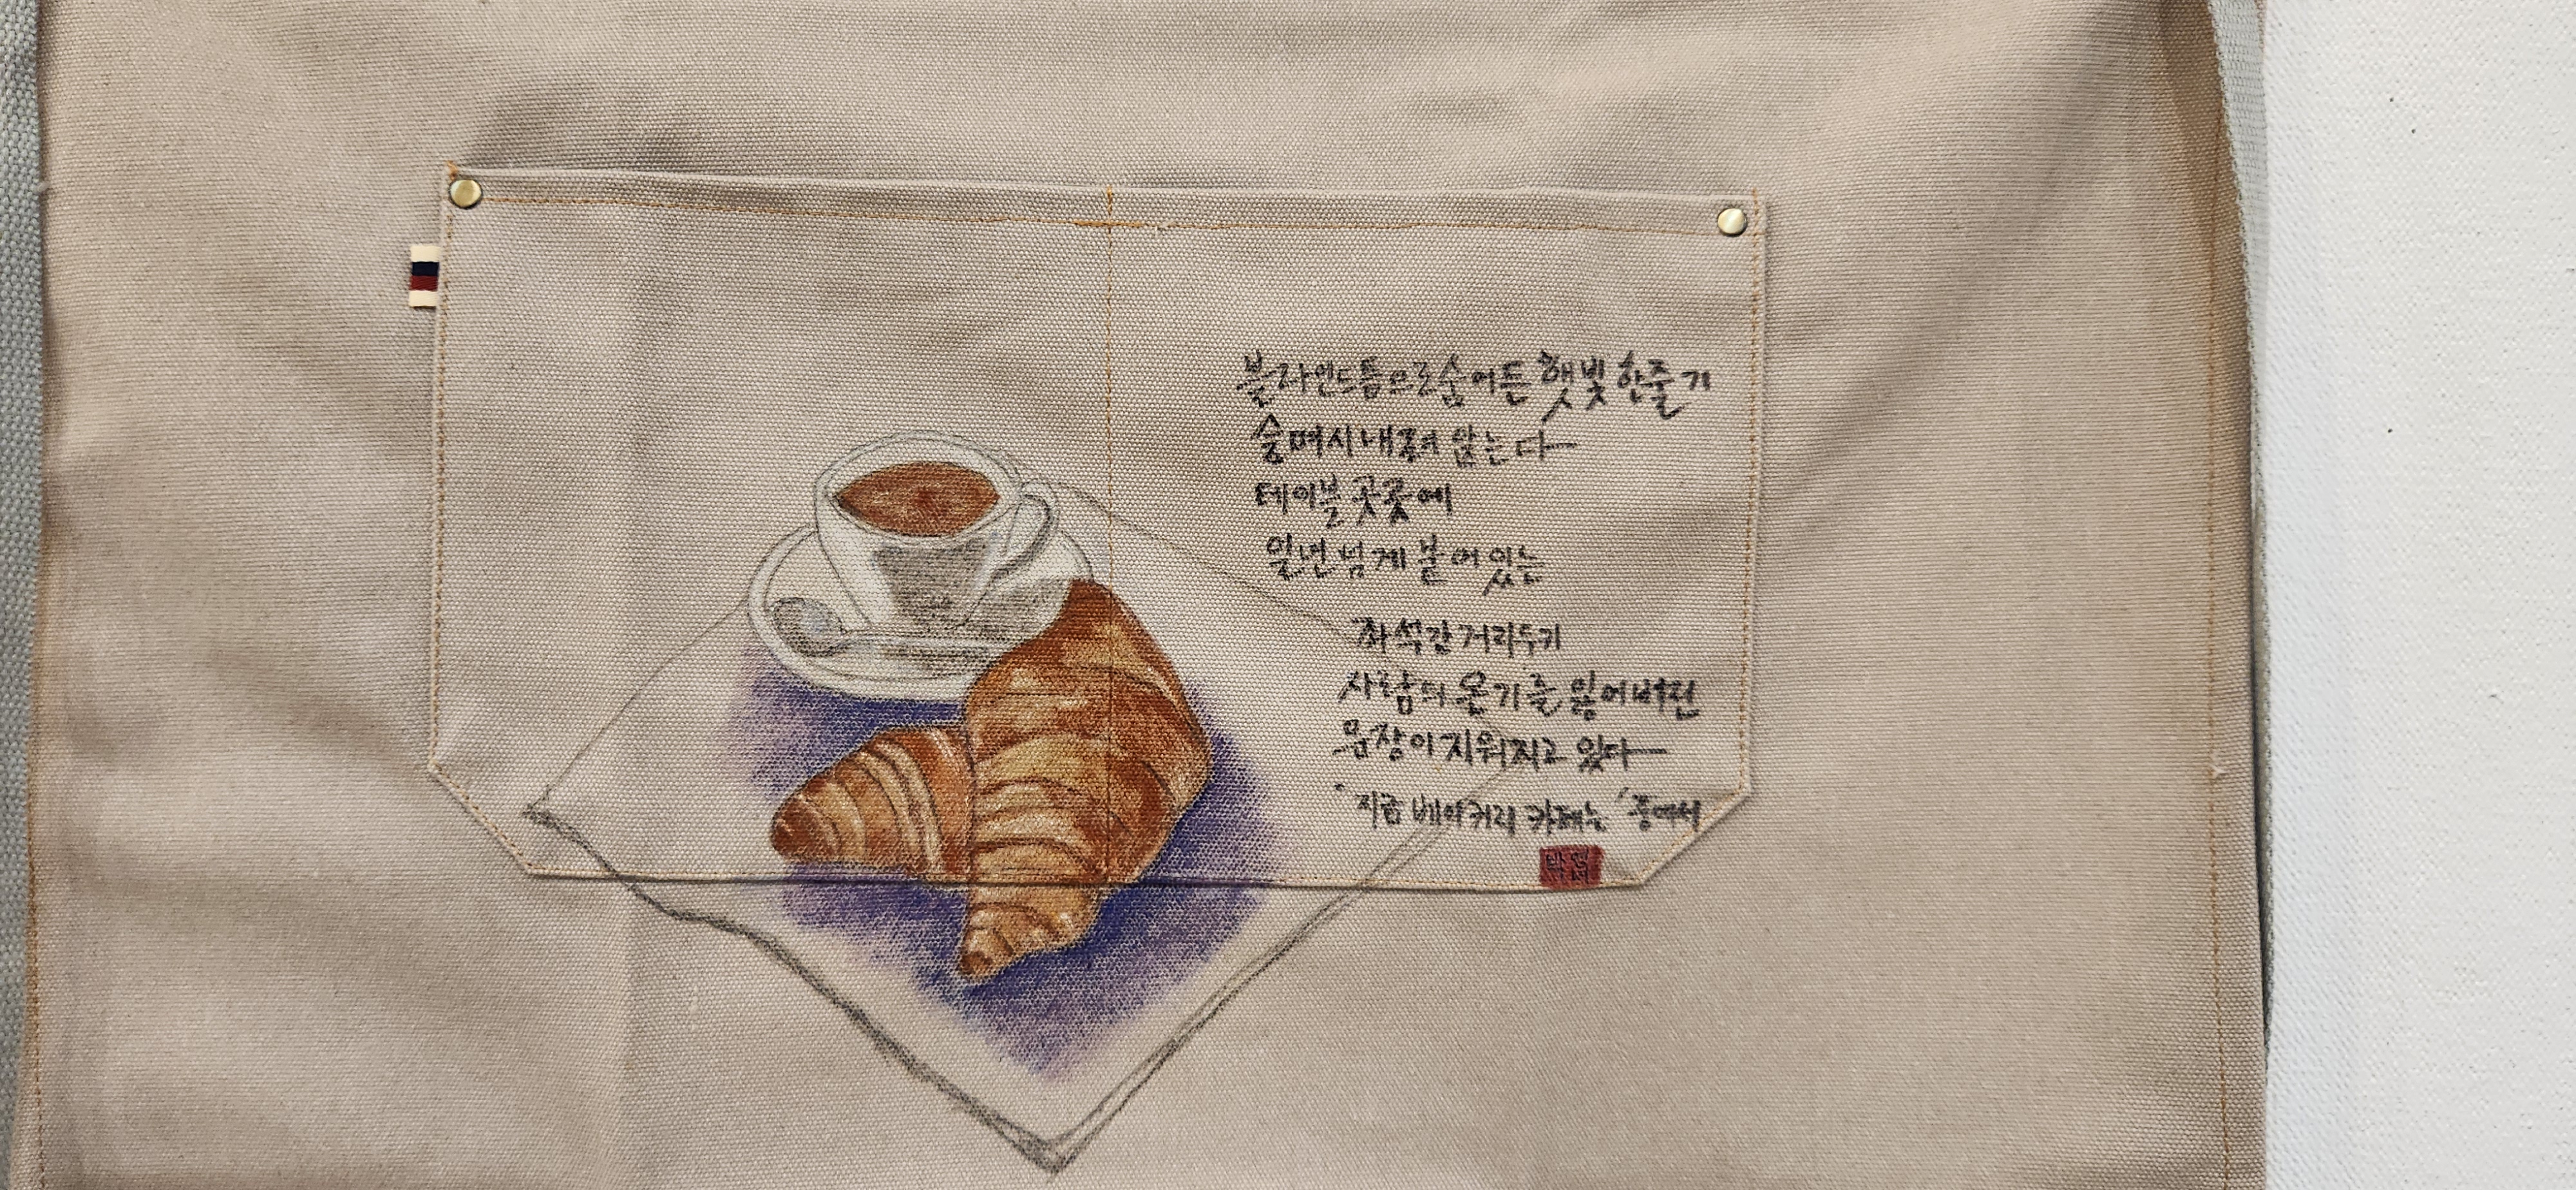 블라인드 틈으로 숨어든 햇빛 한줄기
슬며시 내 곁에 앉는다
테이블 곳곳에
일년 넘게 붙어 있는
좌석간 거리두기
사람의 온기를 잃어버린
문장이 지워지고 있다
"지금 베이커리 카페는" 중에서